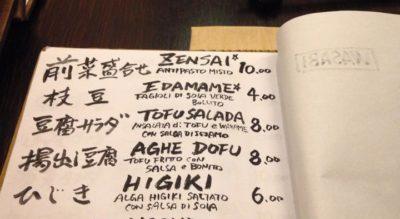 前菜盛合せ ZENSAI* 10.00
ANTIPASTO MISTO
枝豆 EDAMAME* 4.00
FAGIOLI DI SOIA VERDE
BOLLITO
豆腐サラダ TOFU SALADA 8.00
INSALATA di TOFU e WAKAME
CON SALSA DI SESAMO
揚出し豆腐 AGHE DOFU 8.00
TOFU FRITTO CON
SALSA e BONITO
ひじき HIGIKI 6.00
ALGA HIGIKI SALTATO
CON SALSA DI SOIA
WASABI